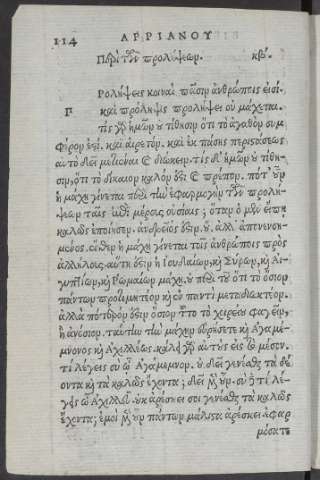 114 ΑΡΡΙΑΝΟΥ
Περὶ τῶν προλήψεων. κβ´.
Ρολήψεις κοιναὶ πᾶσιν ἀνθρώποις εἰσί.
Π καὶ πρόληψις προλήψει οὐ μάχεται.
τίς γὰρ ἡμῶν οὐ τίθησιν ὅτι τὸ ἀγαθὸν συμ
φέρον ἐστί. καὶ αἱρετόν. καὶ ἐκ πάσης περιστάσεως
αὐτὸ δεῖ μετιέναι καὶ διώκειν. τίς δ' ἡμῶν οὐ τίθη-
σιν, ὅτι τὸ δίκαιον καλόν ἐστι καὶ πρέπον. πότ' οὖν
ἡ μάχη γίνεται περὶ τὴν ἐφαρμογὴν τῶν προλή-
ψεων ταῖς ἐπὶ μέρους οὐσίαις; ὅταν ὁ μὲν εἴπῃ
καλῶς ἐποίησεν. ἀνδρεῖός ἐστιν. οὔ. ἀλλ' ἀπονενοη-
μένος. ἔνθεν ἡ μάχη γίνεται τοῖς ἀνθρώποις πρὸς
ἀλλήλους. αὕτη ἐστὶν ἡ Ἰουδαίων, καὶ Σύρων, καὶ Αἰ-
γυπτίων, καὶ Ῥωμαίων μάχη. οὐ περὶ τοῦ ὅτι τὸ ὅσιον
πάντων προτιμητέον καὶ ἐν παντὶ μεταδιωκτέον.
ἀλλὰ πότερόν ἐστιν ὅσιον τοῦτο τὸ χοιρείου φαγεῖν,
ἢ ἀνόσιον. ταύτην τὴν μάχην εὑρήσετε καὶ Ἀγαμέ-
μνονος καὶ Ἀχιλλέως. κάλει γὰρ αὐτοὺς εἰς τὸ μέσον.
τί λέγεις σὺ ὦ Ἀγάμεμνον. οὐ δεῖ γενέσθαι τὰ δέ
οντα καὶ τὰ καλῶς ἔχοντα; δεῖ μὲν οὖν. σὺ δὲ τί λέ-
γεις ὦ Ἀχιλλεῦ. οὐκ ἀρέσκει σοι γενέσθαι τὰ καλῶς
ἔχοντα; ἐμοὶ μὲν οὖν πάντων μάλιστα ἀρέσκει. ἐφαρ
μόσατε